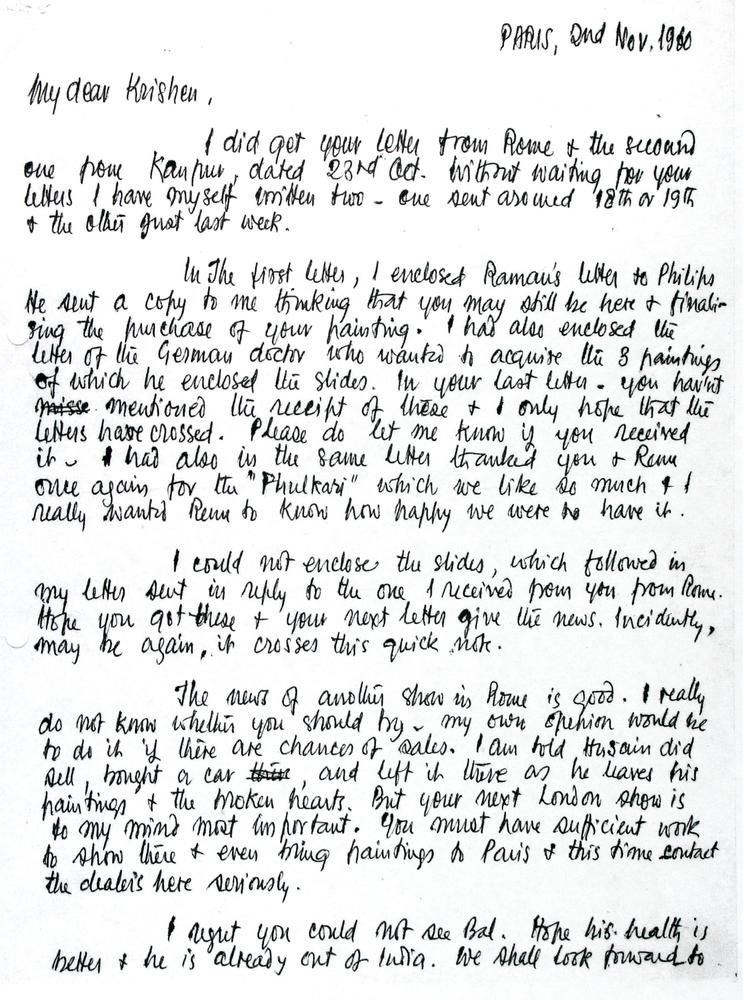 PARIS, 2nd Nov. 1960
My dear Krishen,
I did get your letter from Rome & the second
one from Kanpur, dated 23rd Oct. Without waiting for your
letters I have myself written two - one sent around 18th or 19th
& the other just last week.
In The first letter, I enclosed Raman's letter to Philips
He sent a copy to me thinking that you may still be here & finali-
sing the purchase of your painting. I had also enclosed the
letter of the German doctor who wanted to acquire the 3 paintings
of which he enclosed the slides. In your last letter - you hav'nt
misse mentioned the receipt of these & I only hope that the
letters have crossed. Please do let me know if you received
it - I had also in the same letter thanked you & Renu
once again for the "Phulkari" which we like so much & I
really wanted Renu to know how happy we were to have it.
I could not enclose the slides, which followed in
my letter sent in reply to the one I received from you from Rome.
Hope you got these & your next letter give the news. Incidently,
may be again, it crosses this quick note.
The news of another show in Rome is good. I really
do not know whether you should try - my own openion would be
to do it if there are chances of sales. I am told Husain did
sell, bought a car there, and left it there as he leaves his
paintings & the broken hearts. But your next London show is
to my mind most important. You must have sufficient work
to show there & even bring paintings to Paris & this time contact
the dealers here seriously.
I regret you could not see Bal. Hope his health is
better & he is already out of India. We shall look forward to